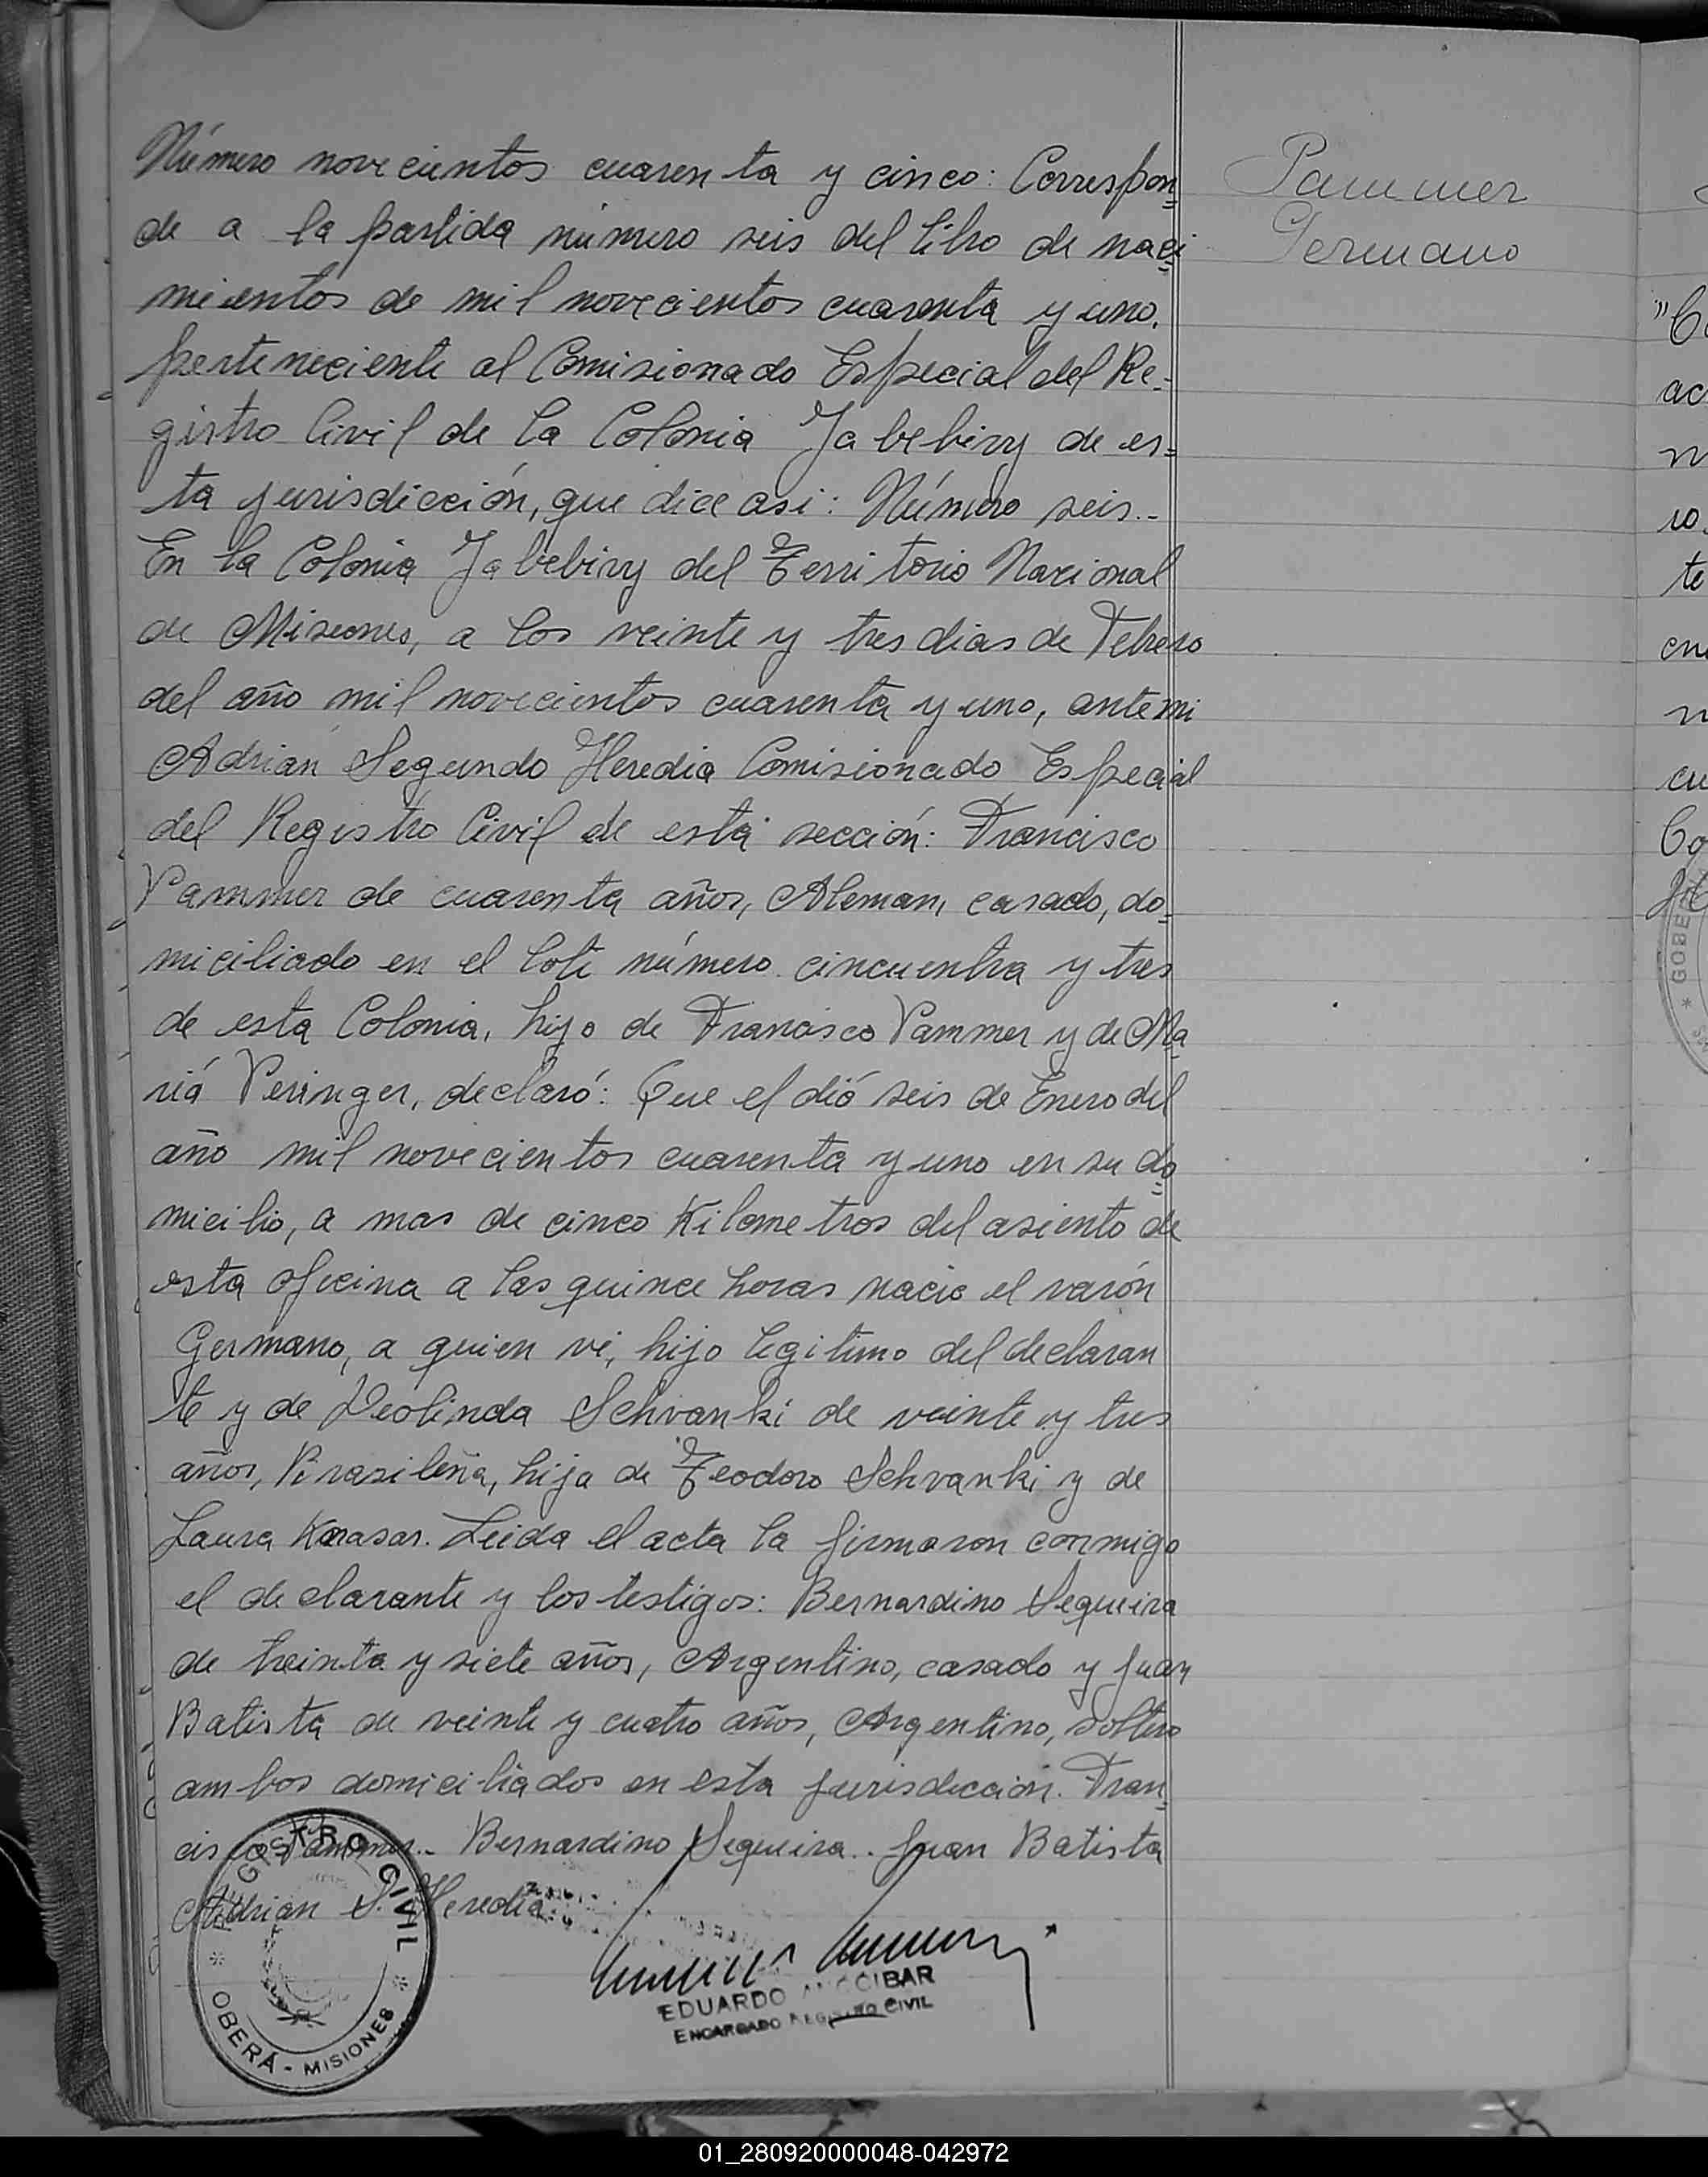 Número novecientos cuarenta y cinco: Correspon=
de a la partida número seis del libro de naci=
mientos de mil novecientos cuarenta y uno,
perteneciente al Comisionado Especial del Re=
gistro Civil de la Colonia Yabebiry de es=
ta jurisdicción, que dice asi: Número seis.-
En la Colonia Yabebiry del Territorio Nacional
de Misiones, a los veinte y tres dias de Febrero
del año mil novecientos cuarenta y uno, ante mi
Adrián Segundo Heredia Comisionado Especial
del Registro Civil de esta sección: Francisco
Pammer de cuarenta años, Aleman, casado, do=
miciliado en el lote número cincuenta y tres
de esta Colonia, hijo de Francisco Pammer y de Ma=
riá Peringer, declaró: Que el dió seis de Enero del
año mil novecientos cuarenta y uno en su do=
micilio, a mas de cinco Kilometros del asiento de
esta oficina a las quince horas nacio el varón
Germano, a quien vi, hijo legitimo del declaran
te y de Deolinda Schvanki de veinte y tres
años, Brasileña, hija de Teodoro Schvanki y de
Laura Karasar. Leida el acta la firmaron conmigo
el declarante y los testigos: Bernardino Sequeira
de treinta y siete años, Argentino, casado y Juan
Batista de veinte y cuatro años, Argentino, soltero
ambos domiciliados en esta jurisdicción. Fran=
cisco Pammer.- Bernardino Sequeira.. Juan Batista
Adrian S. Heredia
REGISTRO CIVIL
* OBERÁ - MISIONES *
EDUARDO ANCCIBAR
ENCARGADO REGISTRO CIVIL
Pammer
Germano
"Co
ac
n
ro.
te
cu
Co
* GOBE
01_280920000048-042972